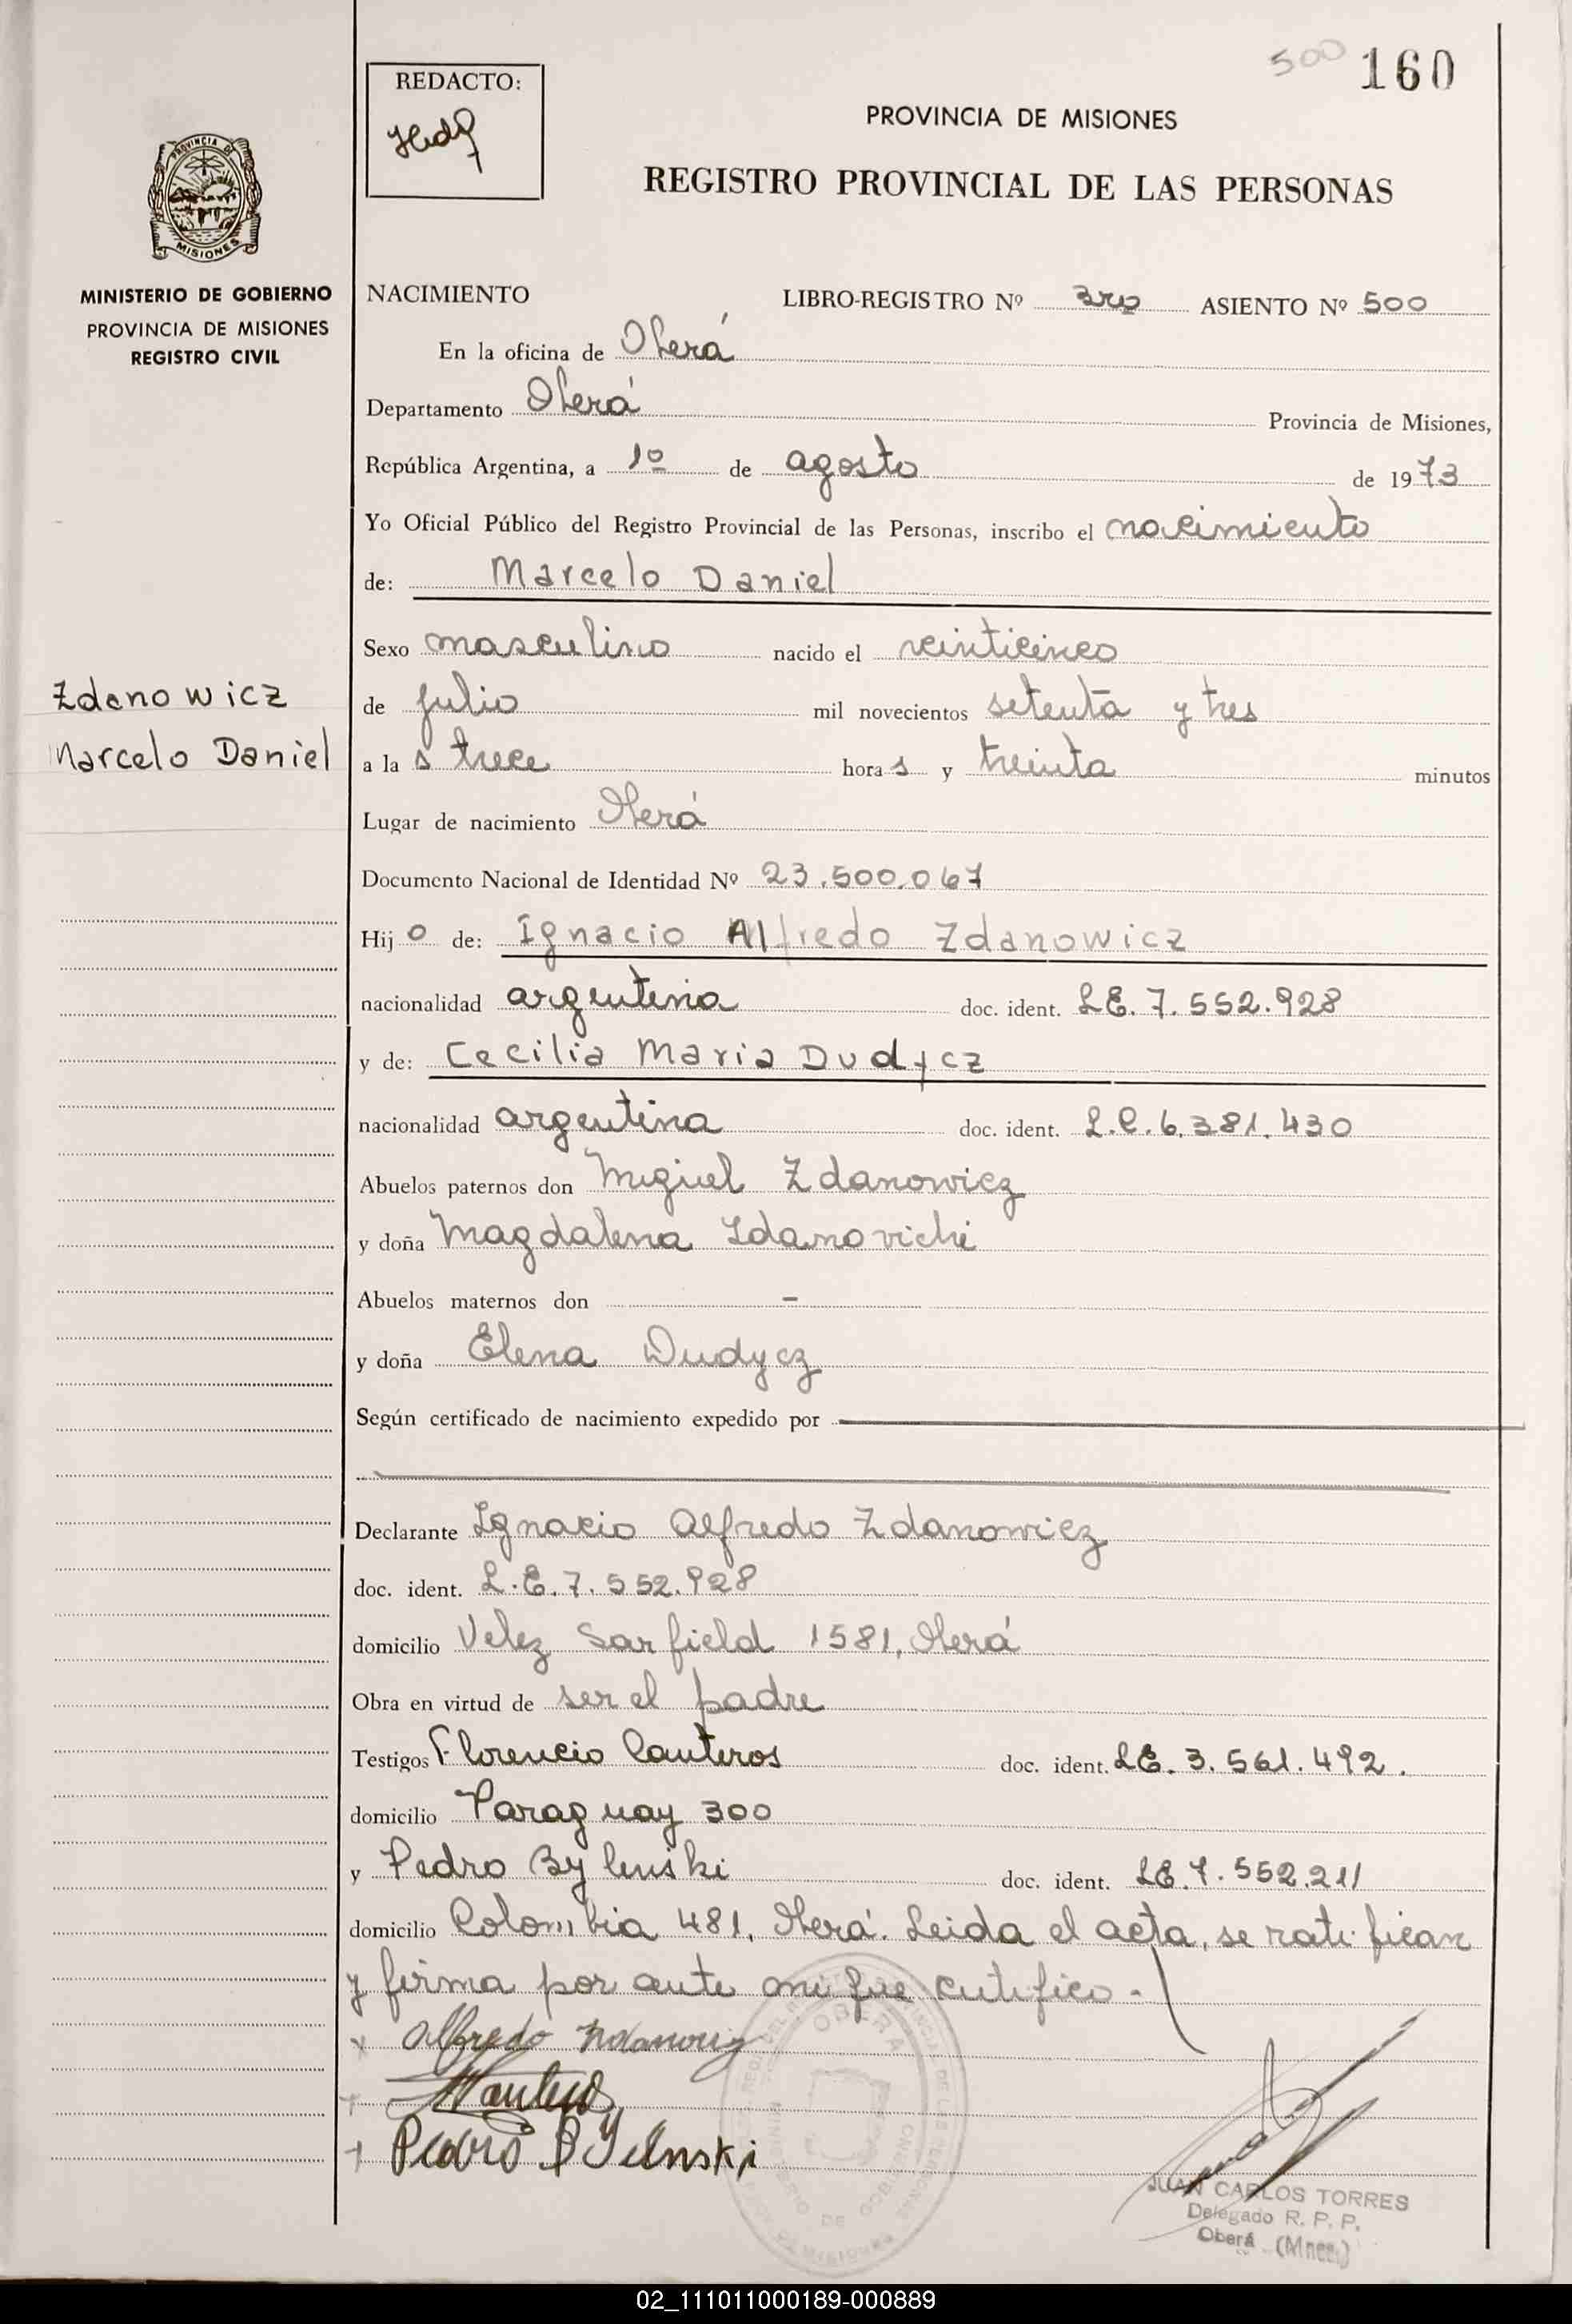 500 160
REDACTO:
PROVINCIA DE MISIONES
REGISTRO PROVINCIAL DE LAS PERSONAS
PROVINCIA DE
MISIONES
MINISTERIO DE GOBIERNO
PROVINCIA DE MISIONES
REGISTRO CIVIL
NACIMIENTO LIBRO-REGISTRO Nº 3ro ASIENTO Nº 500
En la oficina de Oberá
Departamento Oberá Provincia de Misiones,
República Argentina, a 1º de agosto de 1973
Yo Oficial Público del Registro Provincial de las Personas, inscribo el nacimiento
de: Marcelo Daniel
Sexo masculino nacido el veinticinco
Zdanowicz
Marcelo Daniel
de julio mil novecientos setenta y tres
a las trece horas y treinta minutos
Lugar de nacimiento Oberá
Documento Nacional de Identidad Nº 23.500.067
Hijo de: Ignacio Alfredo Zdanowicz
nacionalidad argentina doc. ident. L.E. 7.552.928
y de: Cecilia Maria Dudycz
nacionalidad argentina doc. ident. L.C. 6.381.430
Abuelos paternos don Miguel Zdanowicz
y doña Magdalena Idanovichi
Abuelos maternos don -
y doña Elena Dudycz
Según certificado de nacimiento expedido por
Declarante Ignacio Alfredo Zdanowicz
doc. ident. L.E. 7.552.928
domicilio Velez Sarfield 1581, Oberá
Obra en virtud de ser el padre
Testigos Florencio Canteros doc. ident. LE. 3.561.492.
domicilio Paraguay 300
y Pedro Bylenski doc. ident. LE. 7.552.211
domicilio Colombia 481, Oberá. Leida el acta, se ratifican
y firma por ante mi que certifico.-
Alfredo Zdanowicz
Pedro BYlenski
OBERA
JUAN CARLOS TORRES
Delegado R. P. P.
Oberá (Mnes.)
02_111011000189-000889